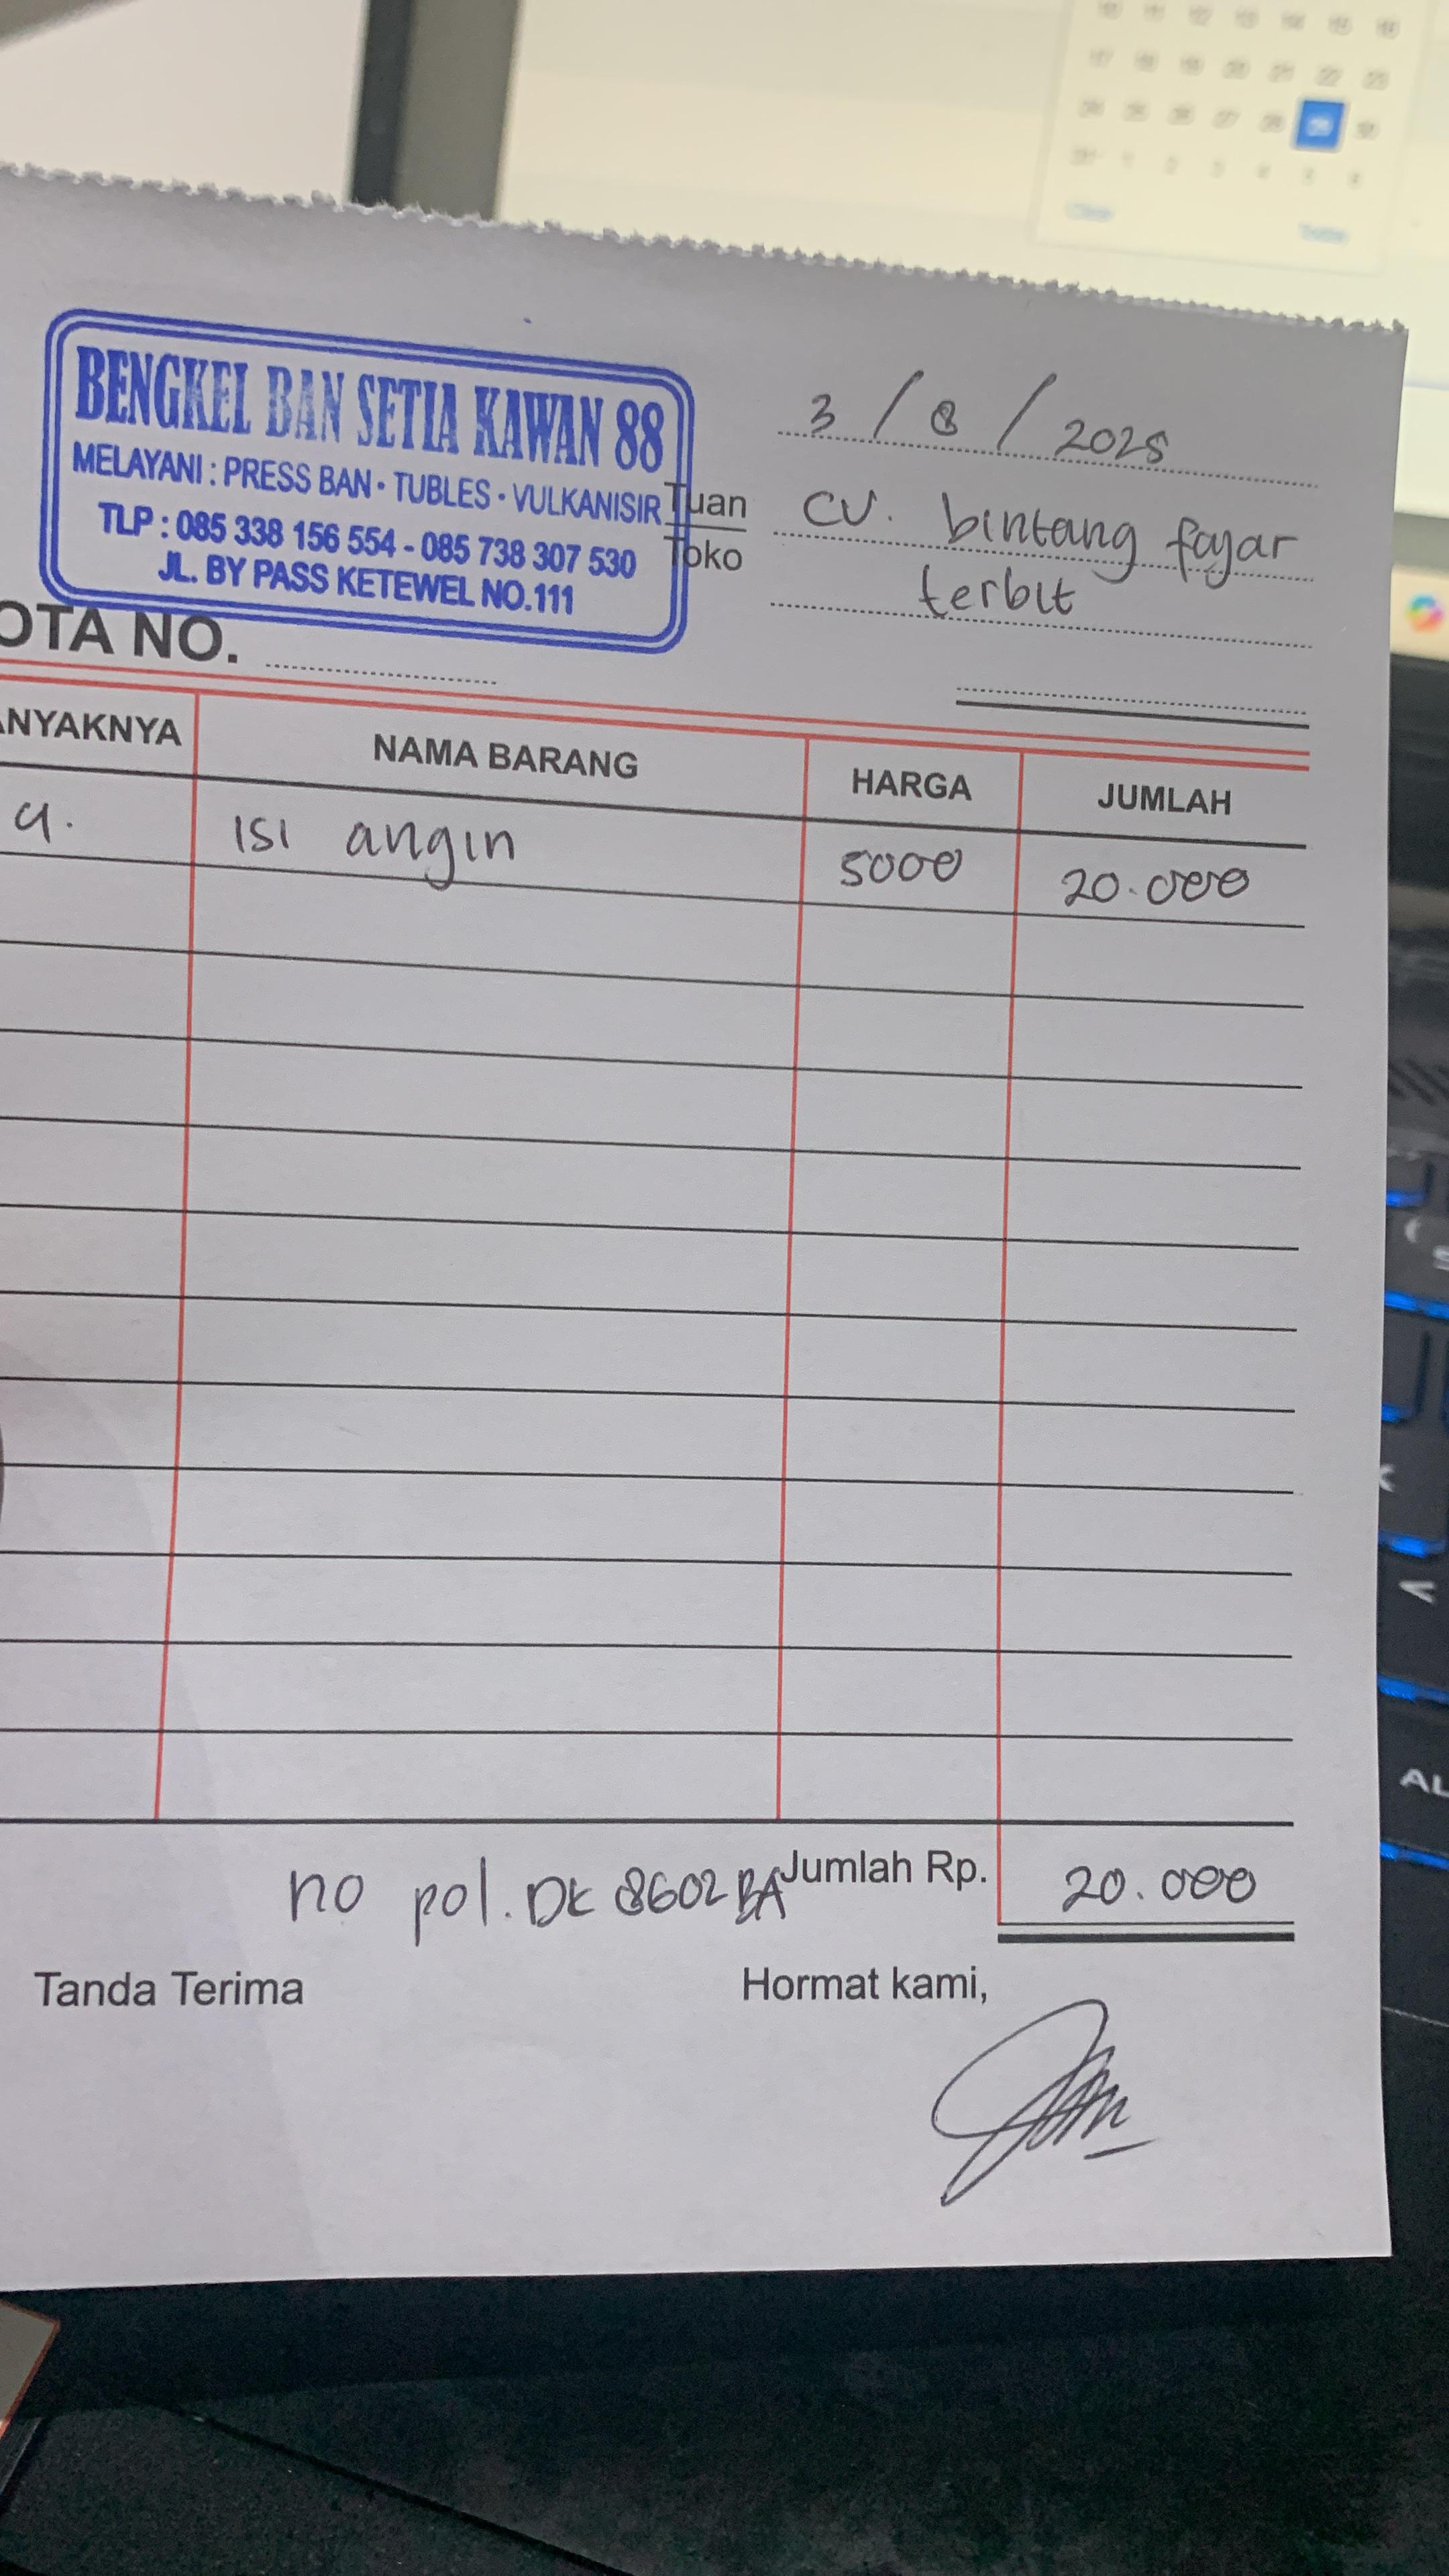 BENGKEL BAN SETIA KAWAN 88
MELAYANI : PRESS BAN • TUBLES • VULKANISIR
TLP : 085 338 156 554 - 085 738 307 530
JL. BY PASS KETEWEL NO.111
3 / 8 / 2025
Tuan
Toko
CV. bintang fajar
terbit
OTA NO.
ANYAKNYA NAMA BARANG HARGA JUMLAH
4. isi angin 5000 20.000
no pol. DK 8602 BA Jumlah Rp. 20.000
Tanda Terima Hormat kami,